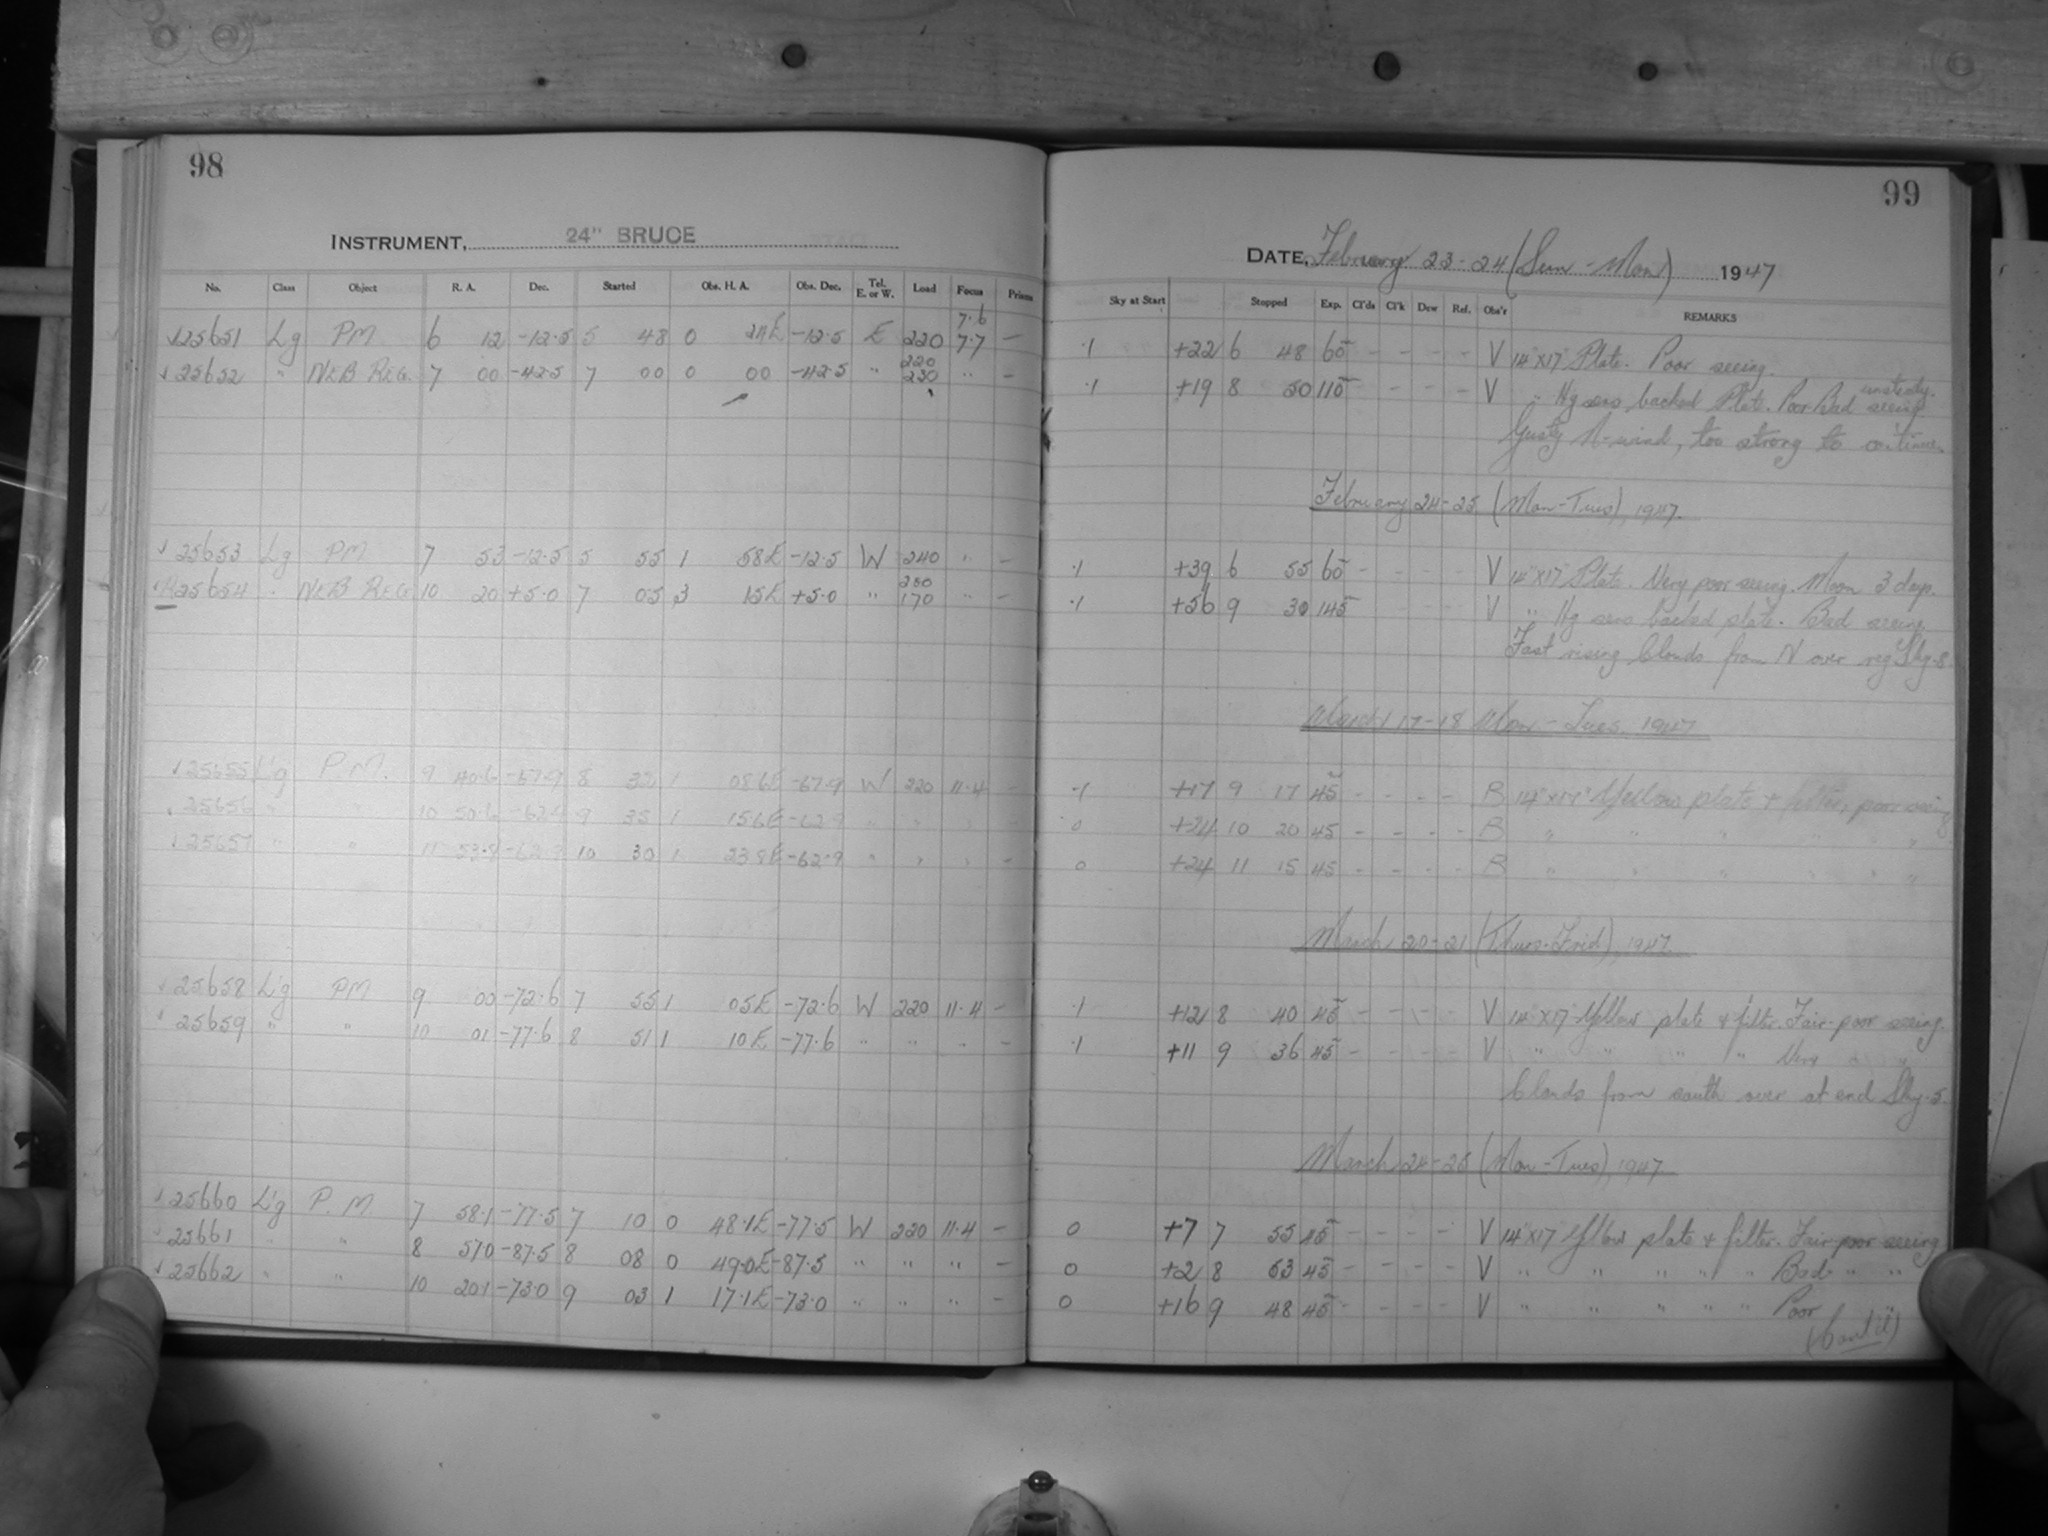 98
INSTRUMENT, 24" BRUCE
No. Class Object R. A. Dec. Started Obs. H. A. Obs. Dec. Tel. E. or W. Load Focus Prisms
7.6
25651 Lg PM 6 12 -12.5 5 48 0 24E -12.5 E 220 7.7 -
220
25652 " NEB REG. 7 00 -42.5 7 00 0 00 -42.5 " 230 " -
25653 Lg PM 7 53 -12.5 5 55 1 58E -12.5 W 240 " -
25654 " NEB REG 10 20 +5.0 7 05 3 15E +5.0 " 170 " -
25655 Lg P.M. 9 40.6 -57.9 8 32 1 08.6E -57.9 W 220 11.4 -
25656 " " 10 50.6 -62.9 9 35 1 15.6E -62.9 " " "
25657 " " 11 53.9 -62.9 10 30 1 23.9E -62.9 " " " -
25658 Lg PM 9 00 -72.6 7 55 1 05E -72.6 W 220 11.4 -
25659 " " 10 01 -77.6 8 51 1 10E -77.6 " " " -
25660 Lg P.M 7 58.1 -77.5 7 10 0 48.1E -77.5 W 220 11.4 -
25661 " " 8 57.0 -87.5 8 08 0 49.0E -87.5 " " " -
25662 " " 10 20.1 -73.0 9 03 1 17.1E -73.0 " " " -
99
DATE, February 23-24 (Sun-Mon) 1947
Sky at Start Stopped Exp. Cl'ds Cl'k Dew Ref. Obs'r REMARKS
.1 +22 6 48 60 - - - - V 14"x17" Plate. Poor seeing.
unsteady.
.1 +19 8 50 110 - - - - V " Hg sens backed Plate. Poor Bad seeing
Gusty N-wind, too strong to continue.
February 24-25 (Mon-Tues), 1947.
.1 +39 6 55 60 - - - - V 14"x17" Plate. Very poor seeing. Moon 3 days.
.1 +56 9 30 145 - - - - V " Hg sens backed plate. Bad seeing
Fast rising Clouds from N over reg Sky .8.
March 17-18 Mon-Tues. 1947
.1 +17 9 17 45 - - - - B 14"x17" Yellow plate + filter, poor seeing
0 +24 10 20 45 - - - - B " " " " " "
0 +24 11 15 45 - - - - B " " " " " "
March 20-21 (Thurs-Frid), 1947.
.1 +12 8 40 45 - - - - V 14"x17" Yellow plate & filter. Fair-poor seeing.
.1 +11 9 36 45 - - - - V " " " " Very " "
Clouds from south over at end Sky .5.
March 24-25 (Mon-Tues), 1947
0 +7 7 55 45 - - - - V 14"x17" Yellow plate & filter. Fair-poor seeing
0 +2 8 53 45 - - - - V " " " " " Bad " "
0 +16 9 48 45 - - - - V " " " " " Poor "
(Cont'd)